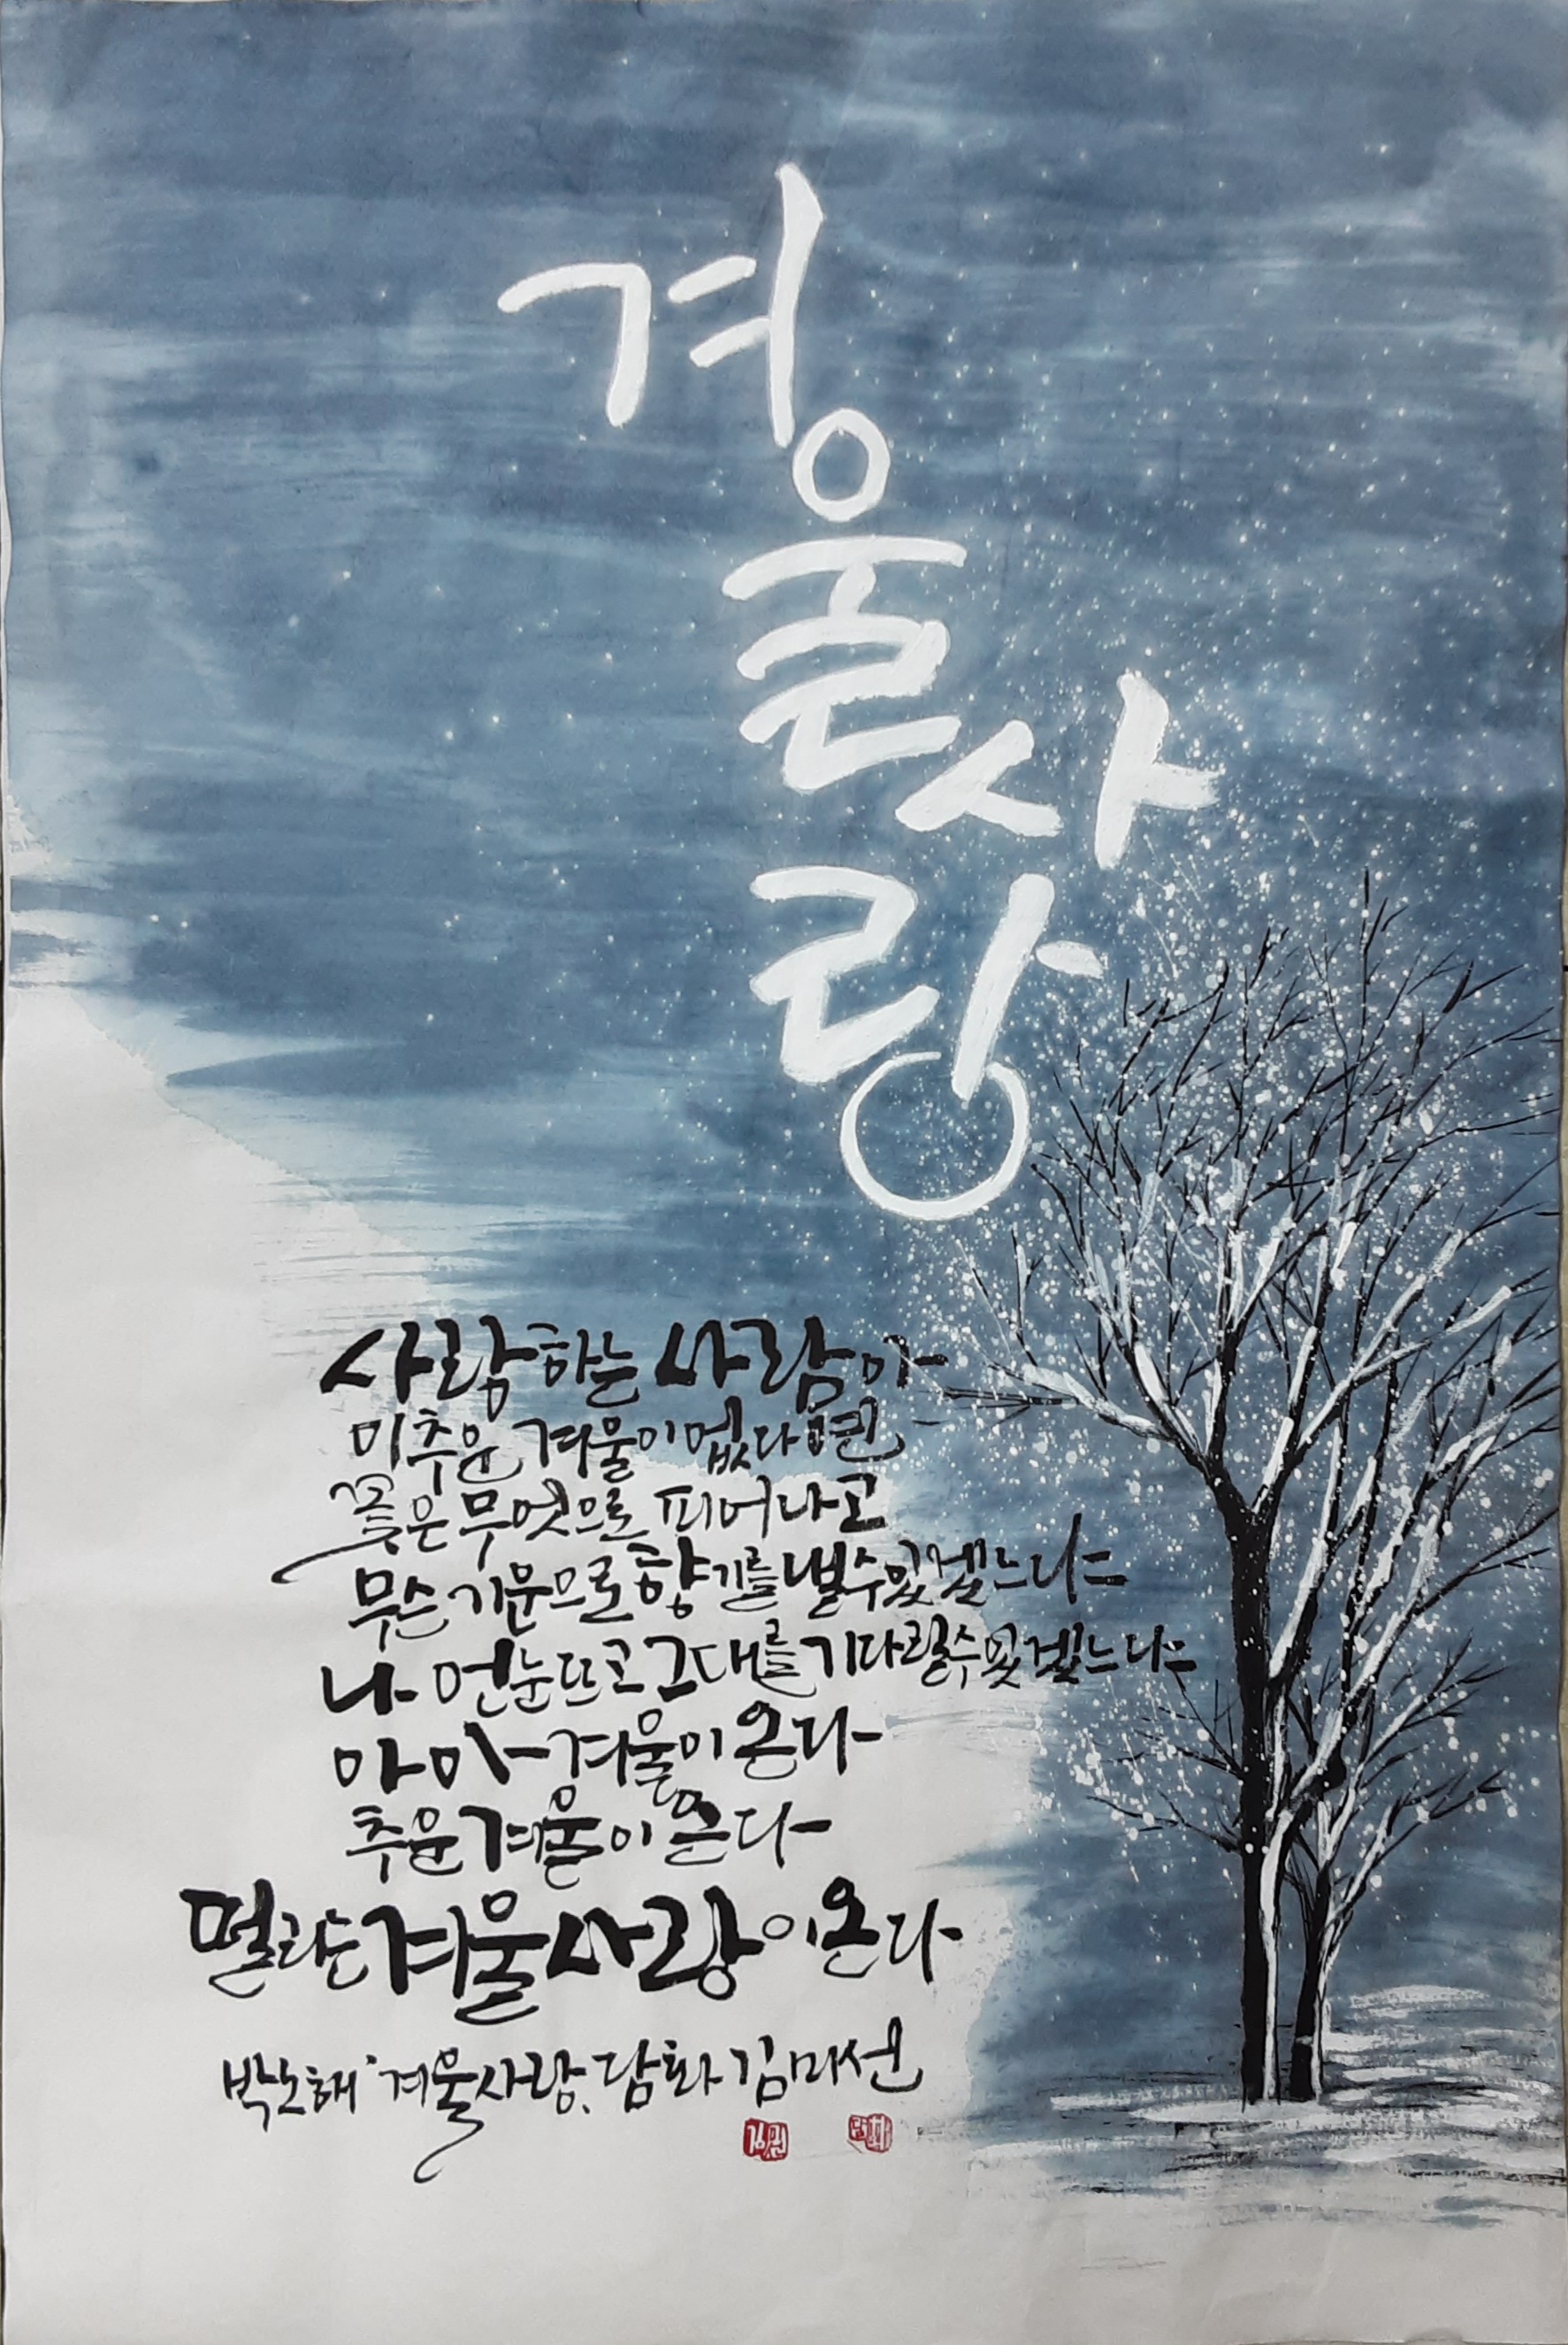 겨울사랑
사랑하는 사람아
이 추운 겨울이 없다면
꽃은 무엇으로 피어나고
무슨 기운으로 향기를 낼 수 있겠느냐
나 언 눈 뜨고 그대를 기다릴 수 있겠느냐
아아 겨울이 온다
추운 겨울이 온다
떨리는 겨울사랑이 온다
박노해 '겨울사랑, 담화 김미선
담화